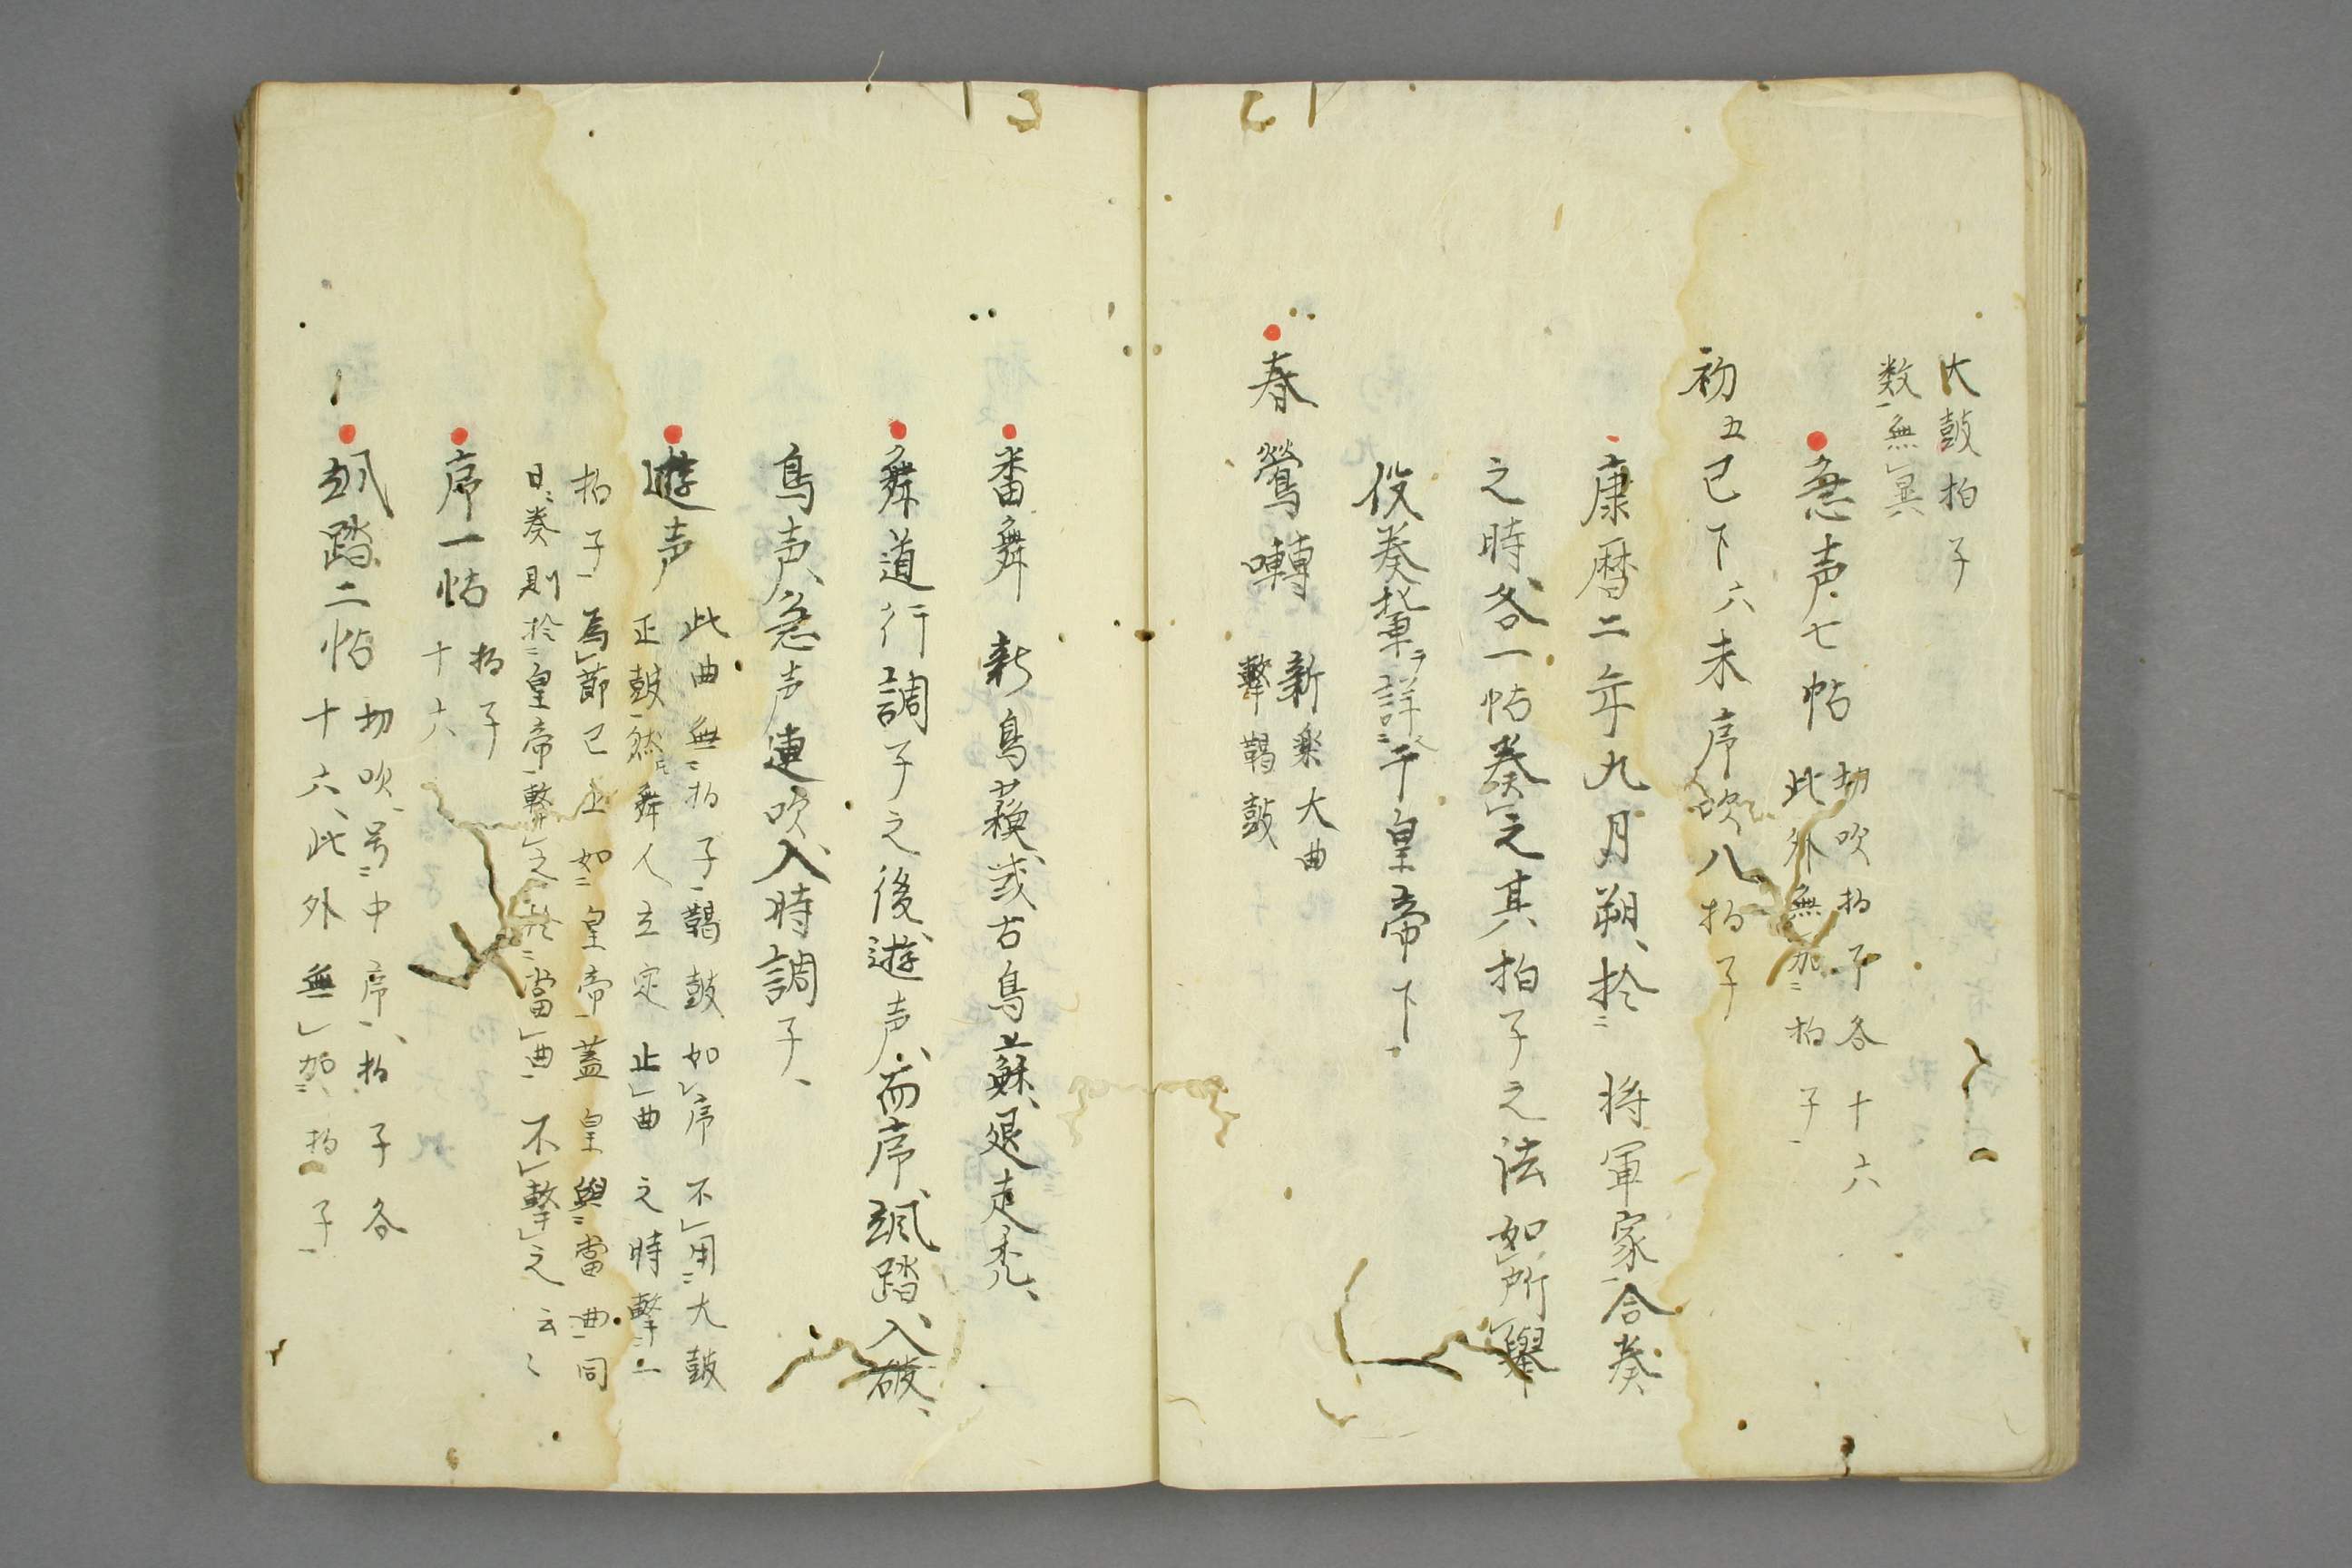 大鼓拍子
数無異
急声七帖
切吹拍子各十六
此外無加拍子
初五已下六未序吹八拍子
康暦二年九月朔、於将軍家合奏
之時各一帖奏之其拍子之法如所擧
役奏輩ヲ詳于皇帝下
春鶯囀
新楽大曲
撃鞨鼓
番舞 新鳥蘓或古鳥蘇、退走禿、
舞道行調子之後遊声、而序、颯踏、入破、
鳥声、急声連吹、入時調子、
遊声
此曲無拍子鞨鼓如序不用大鼓
正鼓然舞人立定止曲之時撃一
拍子為節已上如皇帝蓋皇與當曲同
日奏則於皇帝撃之於當曲不撃之云々
序一帖
拍子
十六
颯踏二帖
切吹、号中序、拍子各
十六、此外無加拍子